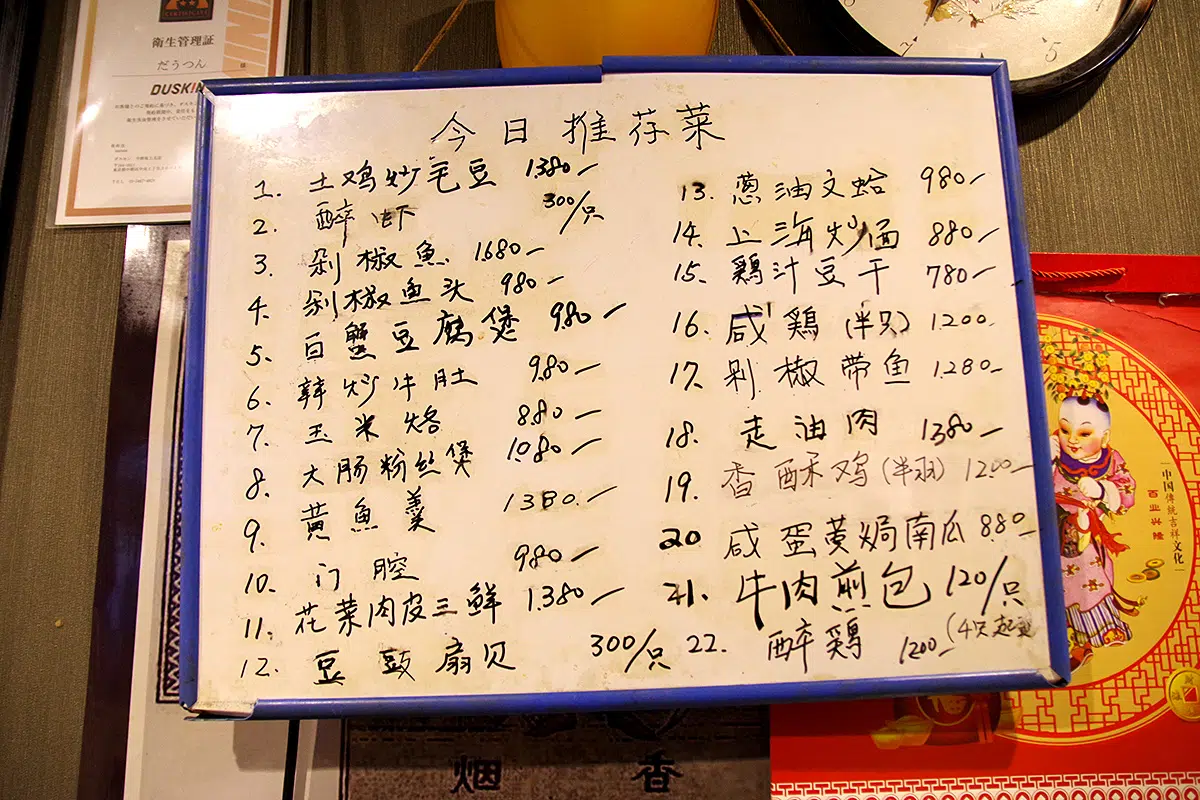 衛生管理証
だうつん 様
DUSKIN
今日推荐菜
1. 土鸡炒毛豆 1380-
2. 醉虾 300/只
3. 剁椒魚 1.680-
4. 剁椒鱼头 980-
5. 白蟹豆腐煲 980-
6. 辣炒牛肚 980-
7. 玉米烙 880-
8. 大肠粉丝煲 1080-
9. 黄魚羹 1380.-
10. 门腔 980-
11. 花菜肉皮三鲜 1.380-
12. 豆豉扇贝 300/只
13. 蔥油文蛤 980-
14. 上海炒面 880-
15. 鶏汁豆干 780-
16. 咸鶏(半只) 1200.
17. 剁椒带鱼 1.280-
18. 走油肉 1380-
19. 香酥鸡(半羽) 1200-
20 咸蛋黄焗南瓜 880-
21. 牛肉煎包 120/只
(4只起
22. 醉鶏 1200-
7
5
中国傳統吉祥文化
百业兴隆
烟 香